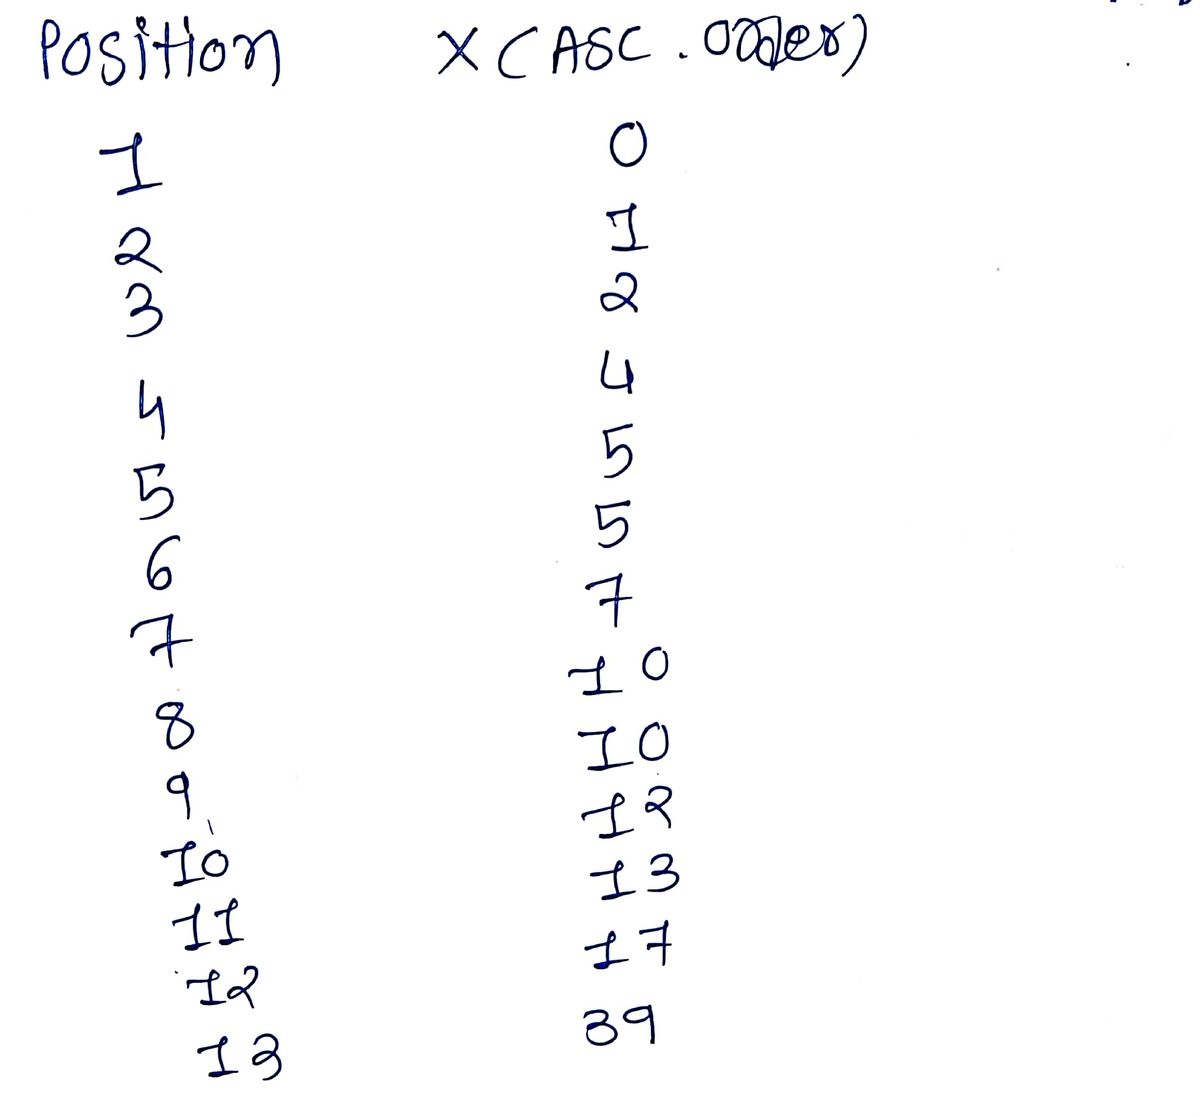 Position X (ASC. order)
1 0
2 1
3 2
4 4
5 5
6 5
7 7
8 10
9 10
10 12
11 13
12 17
13 39